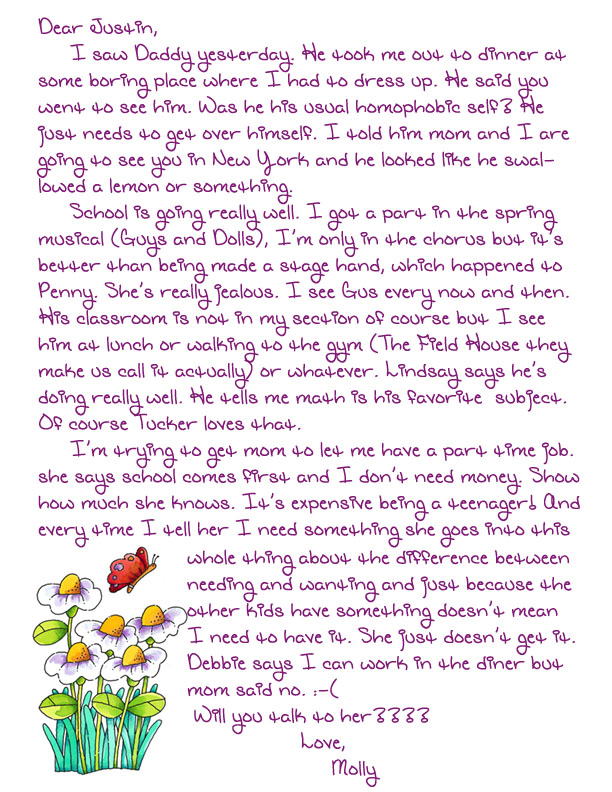 Dear Justin,
I saw Daddy yesterday. He took me out to dinner at
some boring place where I had to dress up. He said you
went to see him. Was he his usual homophobic self? He
just needs to get over himself. I told him mom and I are
going to see you in New York and he looked like he swal-
lowed a lemon or something.
School is going really well. I got a part in the spring
musical (Guys and Dolls), I'm only in the chorus but it's
better than being made a stage hand, which happened to
Penny. She's really jealous. I see Gus every now and then.
His classroom is not in my section of course but I see
him at lunch or walking to the gym (The Field House they
make us call it actually) or whatever. Lindsay says he's
doing really well. He tells me math is his favorite subject.
Of course Tucker loves that.
I'm trying to get mom to let me have a part time job.
she says school comes first and I don't need money. Show
how much she knows. It's expensive being a teenager! And
every time I tell her I need something she goes into this
whole thing about the difference between
needing and wanting and just because the
other kids have something doesn't mean
I need to have it. She just doesn't get it.
Debbie says I can work in the diner but
mom said no. :-(
Will you talk to her????
Love,
Molly